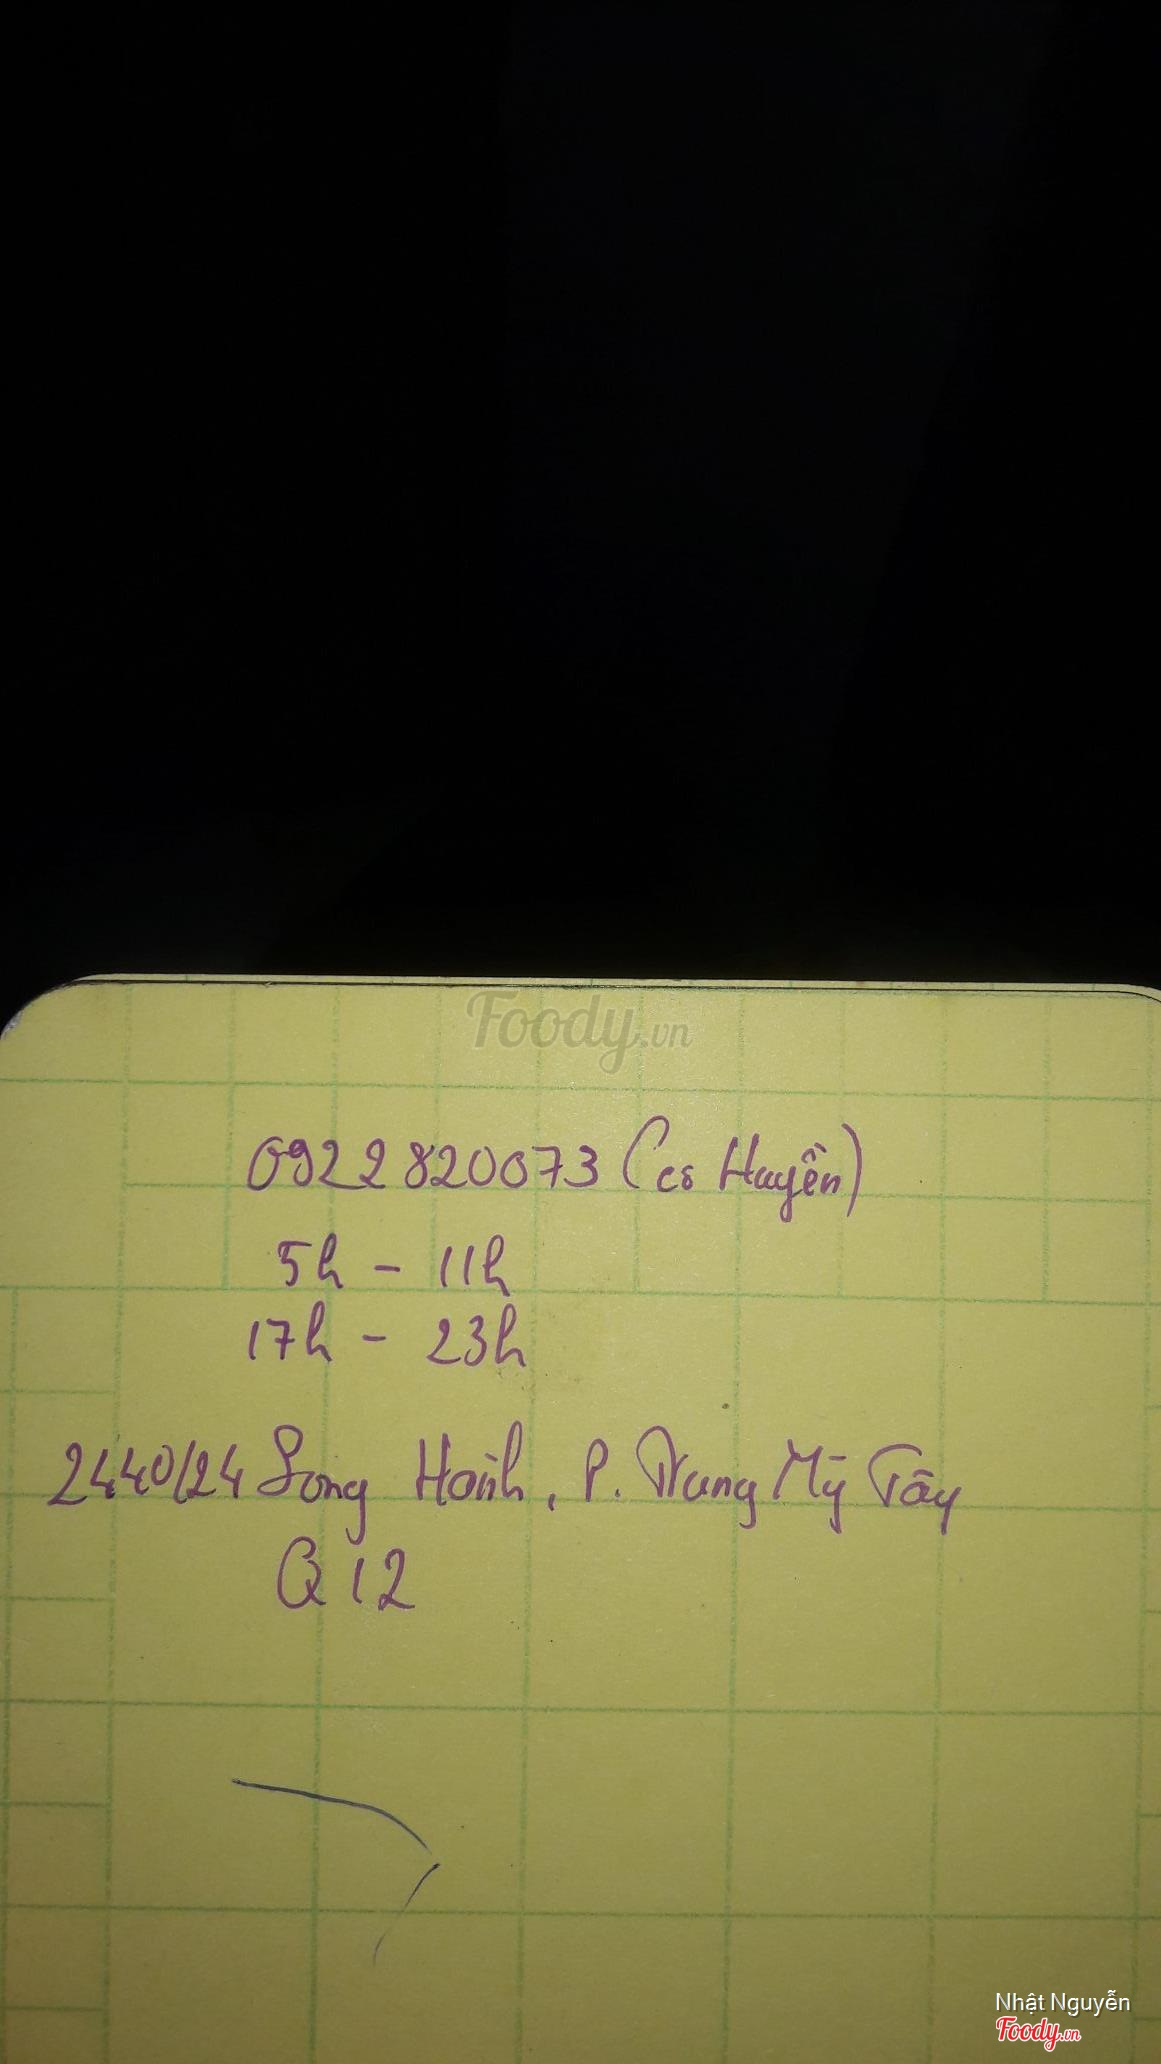 Foody.vn
0922820073 (cô Huyền)
5h - 11h
17h - 23h
2440/24 Song Hành, P. Trung Mỹ Tây
Q12
Nhật Nguyễn
Foody.vn